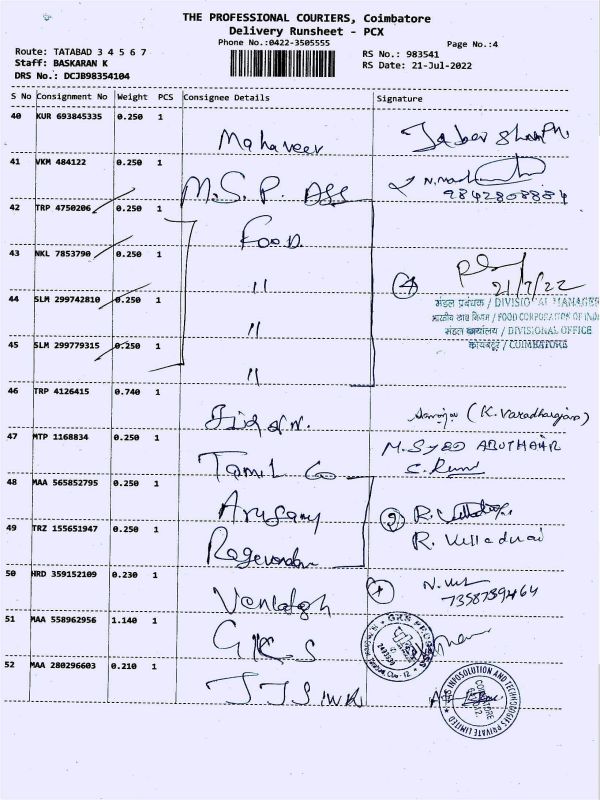 THE PROFESSIONAL COURIERS, Coimbatore
Delivery Runsheet - PCX
Phone No.:0422-3505555
Page No.:4
Route: TATABAD 3 4 5 6 7
Staff: BASKARAN K
DRS No.: DCJB98354104
RS No.: 983541
RS Date: 21-Jul-2022
S No Consignment No Weight PCS Consignee Details Signature
40 KUR 693845335 0.250 1
Mahaveer
41 VKM 484122 0.250 1
M.S.P. ASS
9842808884
42 TRP 4750206 0.250 1
Food
43 NKL 7853790 0.250 1
"
4
21/7/22
44 SLM 299742810 0.250 1
"
मंडल प्रबंधक / DIVISIONAL MANAGER
भारतीय खाद्य निगम / FOOD CORPORATION OF INDI
मंडल कार्यालय / DIVISIONAL OFFICE
कोयंबटूर / COIMBATORE
45 SLM 299779315 0.250 1
"
46 TRP 4126415 0.740 1
(K. Varadharajan)
47 MTP 1168834 0.250 1
Tamil Co
M. SYED ABUTHAHIR
48 MAA 565852795 0.250 1
2
49 TRZ 155651947 0.250 1
R. Velladurai
50 HRD 359152109 0.230 1
Venkatesh
7358739464
51 MAA 558962956 1.140 1
G.K.S
52 MAA 280296603 0.210 1
INFOSOLUTION AND TECHNOLOGIES PRIVATE LIMITED